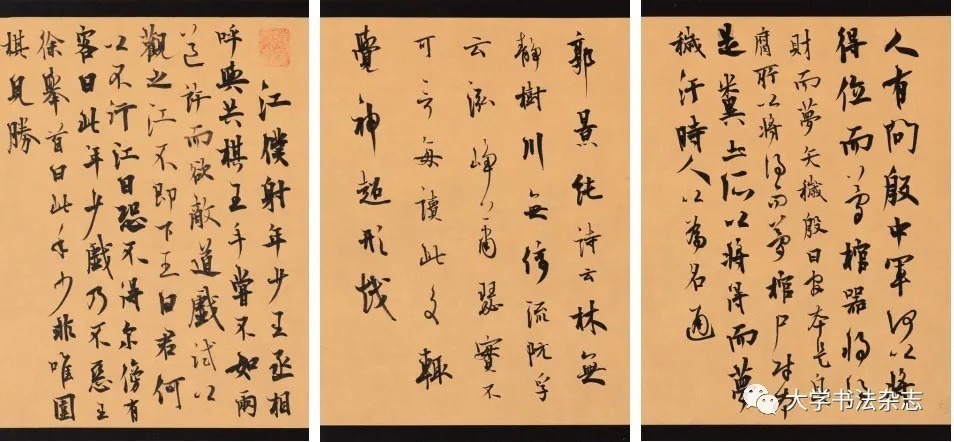 人有問殷中軍何以將
得位而夢棺器將得
財而夢矢穢殷曰官本是臭
腐所以將得而夢棺尸財本
是糞土所以將得而夢
穢汙時人以為名通
郭景純詩云林無
靜樹川無停流阮孚
云泓崢蕭瑟實不
可言每讀此文輒
覺神超形越
江僕射年少王丞相
呼與共棋王手嘗不如兩
道許而欲敵道戲試以
觀之江不即下王曰君何
以不行江曰恐不得爾傍有
客曰此年少戲乃不惡王
徐舉首曰此年少非唯圍
棋見勝
大学书法杂志